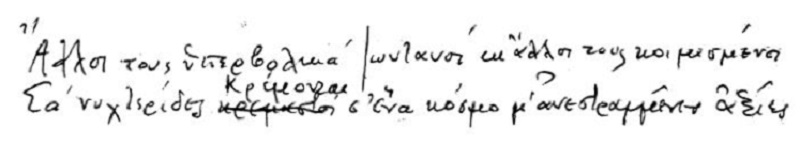 Ἄλλοι τους ὑπερβολικά ζωντανοί κι ἄλλοι τους κοιμισμένοι
Σά νυχτερίδες κρέμονται κρεμαστοί σ' ἕνα κόσμο μ' ἀνεστραμμένες ἀξίες